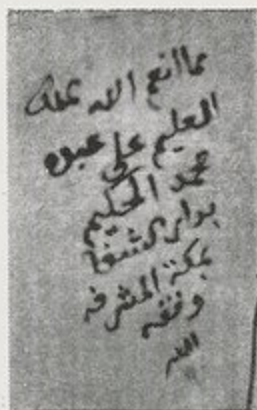 مما انعم الله به
العليم على عبده
محمد الحكيم
بدار الشفا
بمكة المشرفه
وفقه
الله